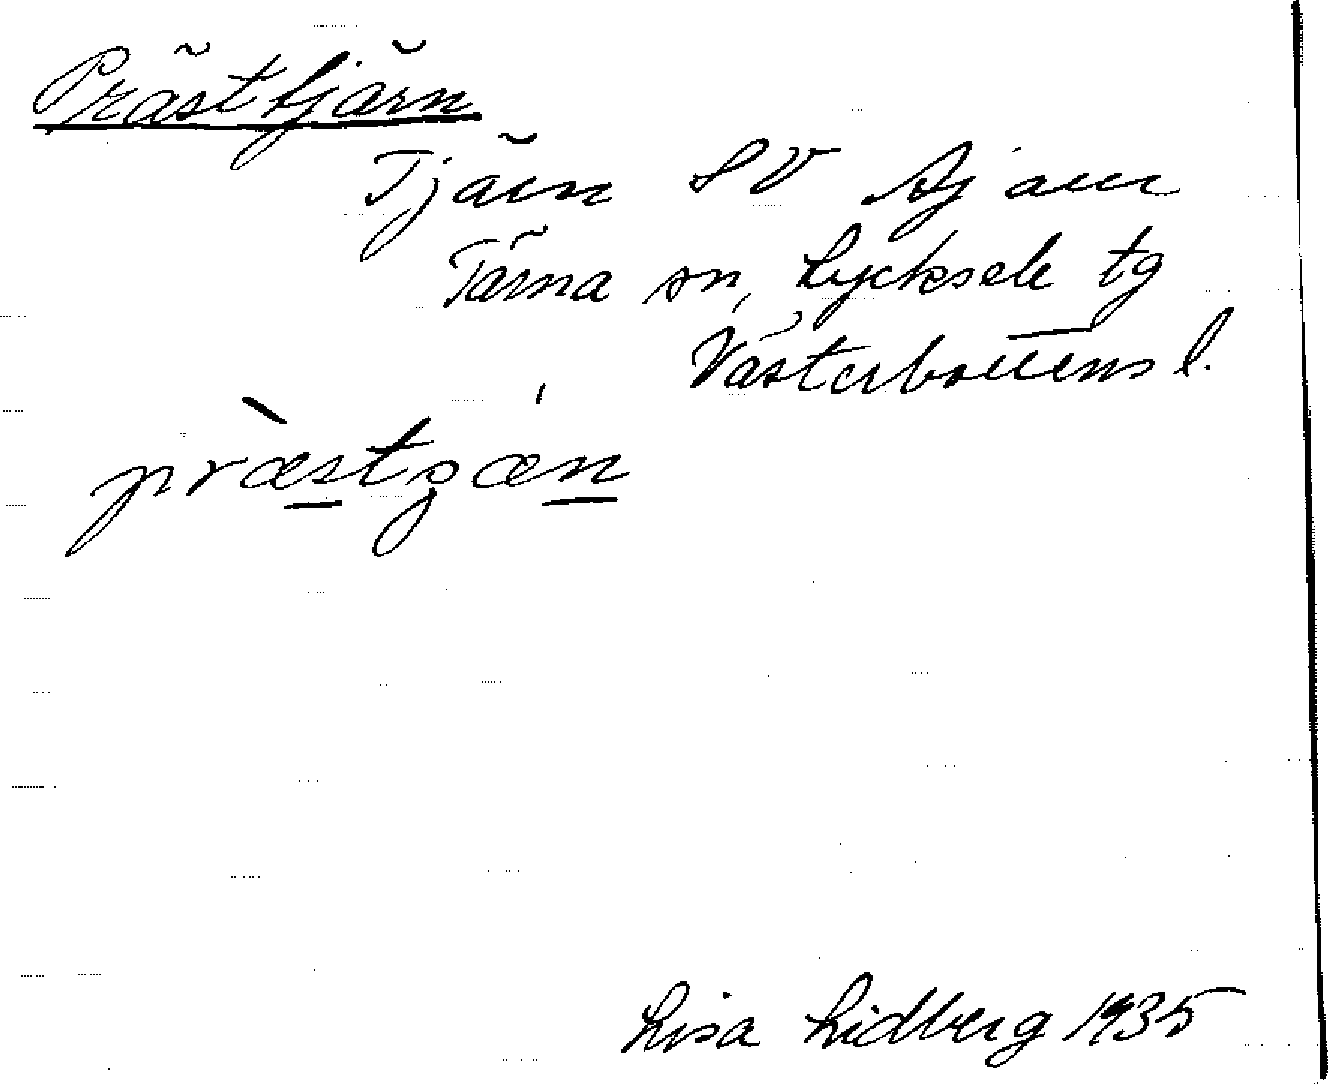 Prästtjärn
Tjärn SV Ajaur
Tärna sn, Lycksele tg
Västerbottens l.
Lisa Lidberg 1935